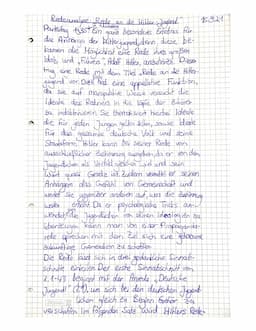 Redeanalyse „Rede an die Hitler-Jugend"
Parteitag 1935! Ein ganz besonderes Erlebnis für
die Anhänger der Hitlerjugend, denn diese be-
kamen die Möglichkeit eine Rede ihres großen
Idols und „Führers", Adolf Hitler, anzuhören. Dieser
trug eine Rede mit dem Titel „Rede an die Hitler-
jugend" vor. Das Ziel hat eine appellative Funktion,
da sie auf manipulative Weise versucht die
Ideale des Redners in die Köpfe der Zuhörer
zu indoktrinieren. Sie thematisiert hierbei Ideale
die für jeden Jungen gelten sollen, sowie Ideale
für das gesamte deutsche Volk und seine
Staatsform. Hitler kann bei seiner Rede von
ausschließlicher Zustimmung ausgehen, da er von den
Jugendlichen als Vorbild gesehen wird und sein
Wort quasi Gesetz ist. Zudem vermittelt er seinen
Anhängern das Gefühl von Gemeinschaft und
wertet sie gegenüber anderen auf, was die Zustimmung
weiter erhöht. Da er psychologische Tricks an-
wendet, die Jugendlichen von seinen Ideologien zu
überzeugen kann man von einer Propaganda-
rede sprechen mit dem Ziel sich eine gehorsame
zukünftige Generation zu schaffen.
Die Rede lässt sich in drei gedankliche Sinnab-
schnitte einteilen. Der erste Sinnabschnitt von
Z. 1-43 beginnt mit der Anrede „Deutsche
Jugend" (Z. 1), um sich bei den deutschen Jugend-
lichen gleich zu Beginn Gehör zu
verschaffen. Im folgenden Satz wird Hitlers Rede-